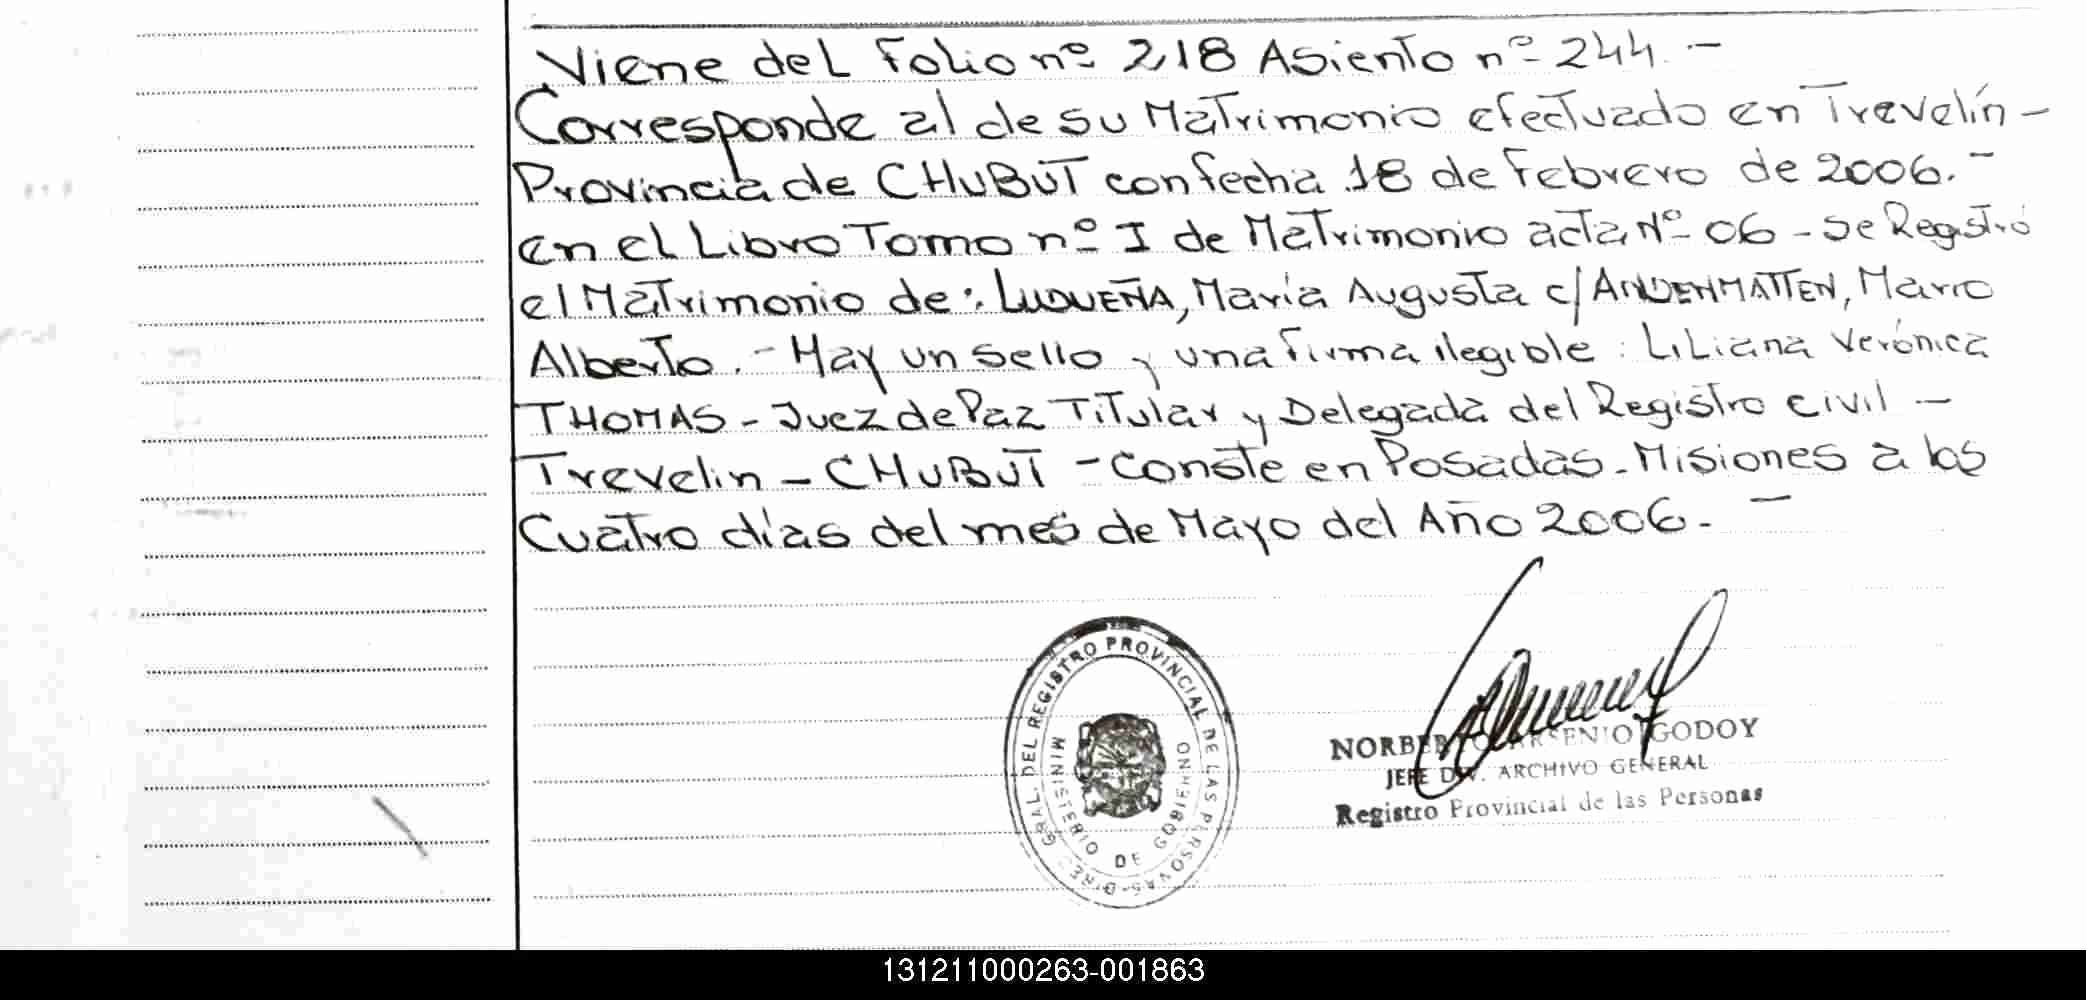 Viene del Folio nº 218 Asiento nº 244.-
Corresponde al de su Matrimonio efectuado en Trevelín-
Provincia de CHUBUT con fecha 18 de Febrero de 2006.-
en el Libro Tomo nº I de Matrimonio acta Nº 06 - se Registró
el Matrimonio de: LUDUEÑA, María Augusta c/ ANDENMATTEN, Mario
Alberto.- Hay un sello y una firma ilegible: Liliana Verónica
THOMAS - Juez de Paz Titular y Delegada del Registro civil -
Trevelin - CHUBUT - Conste en Posadas - Misiones a los
Cuatro días del mes de Mayo del Año 2006.-
DIREC. GRAL. DEL REGISTRO PROVINCIAL DE LAS PERSONAS
MINISTERIO DE GOBIERNO
NORBERTO ARSENIO GODOY
JEFE DIV. ARCHIVO GENERAL
Registro Provincial de las Personas
131211000263-001863